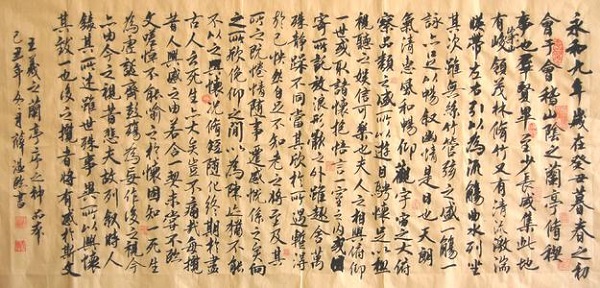 永和九年歲在癸丑暮春之初
會于會稽山陰之蘭亭脩禊
事也群賢畢至少長咸集此地
崇山
有峻領茂林脩竹又有清流激湍
暎帶左右引以為流觴曲水列坐
其次雖無絲竹管弦之盛一觴一
詠亦足以暢敘幽情是日也天朗
氣清惠風和暢仰觀宇宙之大俯
察品類之盛所以遊目騁懷足以極
視聽之娛信可樂也夫人之相與俯仰
一世或取諸懷抱悟言一室之內或因
寄所託放浪形骸之外雖趣舍萬
殊靜躁不同當其欣於所遇暫得
於己怏然自足不知老之將至及其
所之既惓情隨事遷感慨係之矣向
之所欣俛仰之間以為陳迹猶不能
不以之興懷況脩短隨化終期於盡
古人云死生亦大矣豈不痛哉每攬
昔人興感之由若合一契未嘗不臨
文嗟悼不能喻之於懷固知一死生
為虛誕齊彭殤為妄作後之視今
亦由今之視昔悲夫故列敘時人
錄其所述雖世殊事異所以興懷
其致一也後之攬者亦將有感於斯文
王羲之蘭亭序之神品本
己丑年 月薛 書